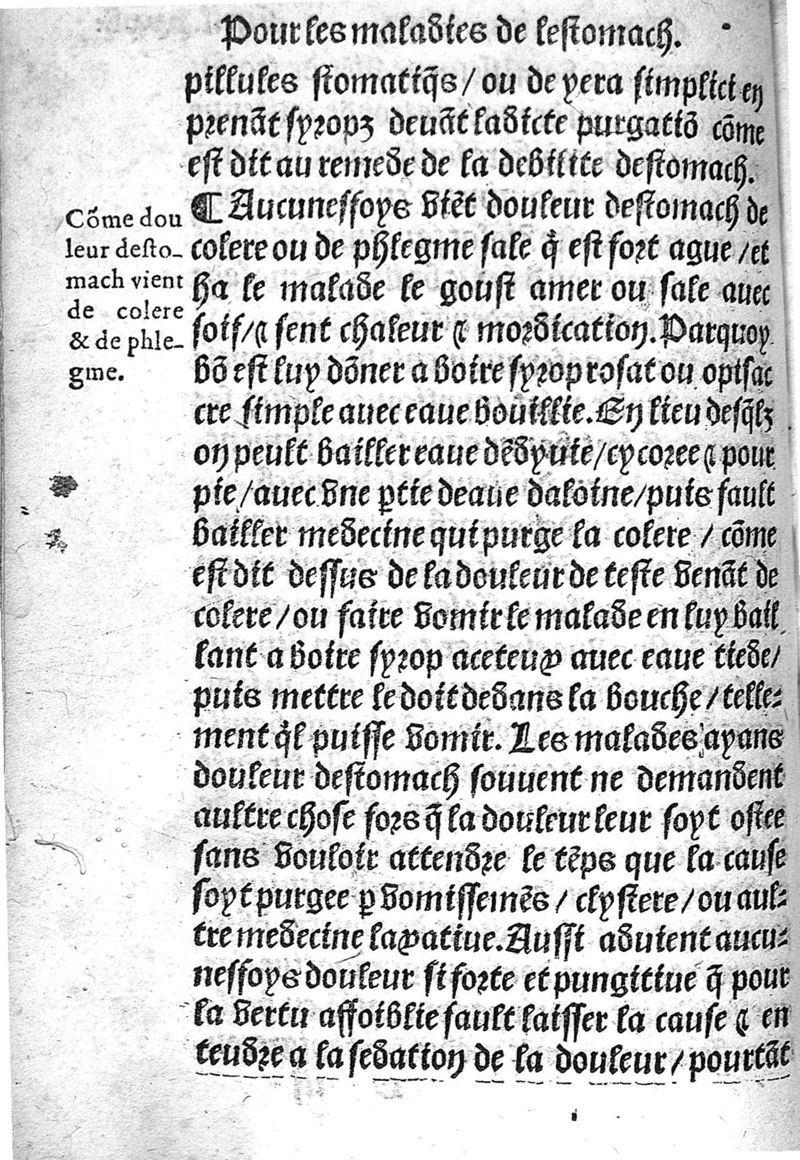 Pour les maladies de lestomach.
pillules stomatiq̃s/ ou de yera simplici en
prenãt syropz deuãt ladicte purgatiõ cõme
est dit au remede de la debilite destomach.
¶ Aucunessoys viẽt douleur destomach de
colere ou de phlegme sale q̃ est fort ague/et
ha le malade le goust amer ou sale auec
soif/⁊ sent chaleur ⁊ mordication. Parquoy
bõ est luy dõner a boire syrop rosat ou opisac
cre simple auec eaue bouillie. En lieu desq̃lz
on peult bailler eaue dẽdyuie/cycoree ⁊ pour
pie/auec vne ꝑtie deaue daloine/puis fault
bailler medecine qui purge la colere / cõme
est dit dessus de la douleur de teste venãt de
colere/ou faire vomir le malade en luy bail
lant a boire syrop aceteux auec eaue tiede/
puis mettre le doit dedans la bouche/telle-
ment q̃l puisse vomir. Les malades ayans
douleur destomach souuent ne demandent
aultre chose fors q̃ la douleur leur soyt ostee
sans vouloir attendre le tẽps que la cause
soyt purgee ꝑ vomissemẽs/ clystere/ou aul-
tre medecine laxatiue. Aussi aduient aucu-
nessoys douleur si forte et pungitiue q̃ pour
la vertu affoiblie fault laisser la cause ⁊ en
tendre a la sedation de la douleur/pourtãt
Cõme dou
leur desto-
mach vient
de colere
& de phle-
gme.